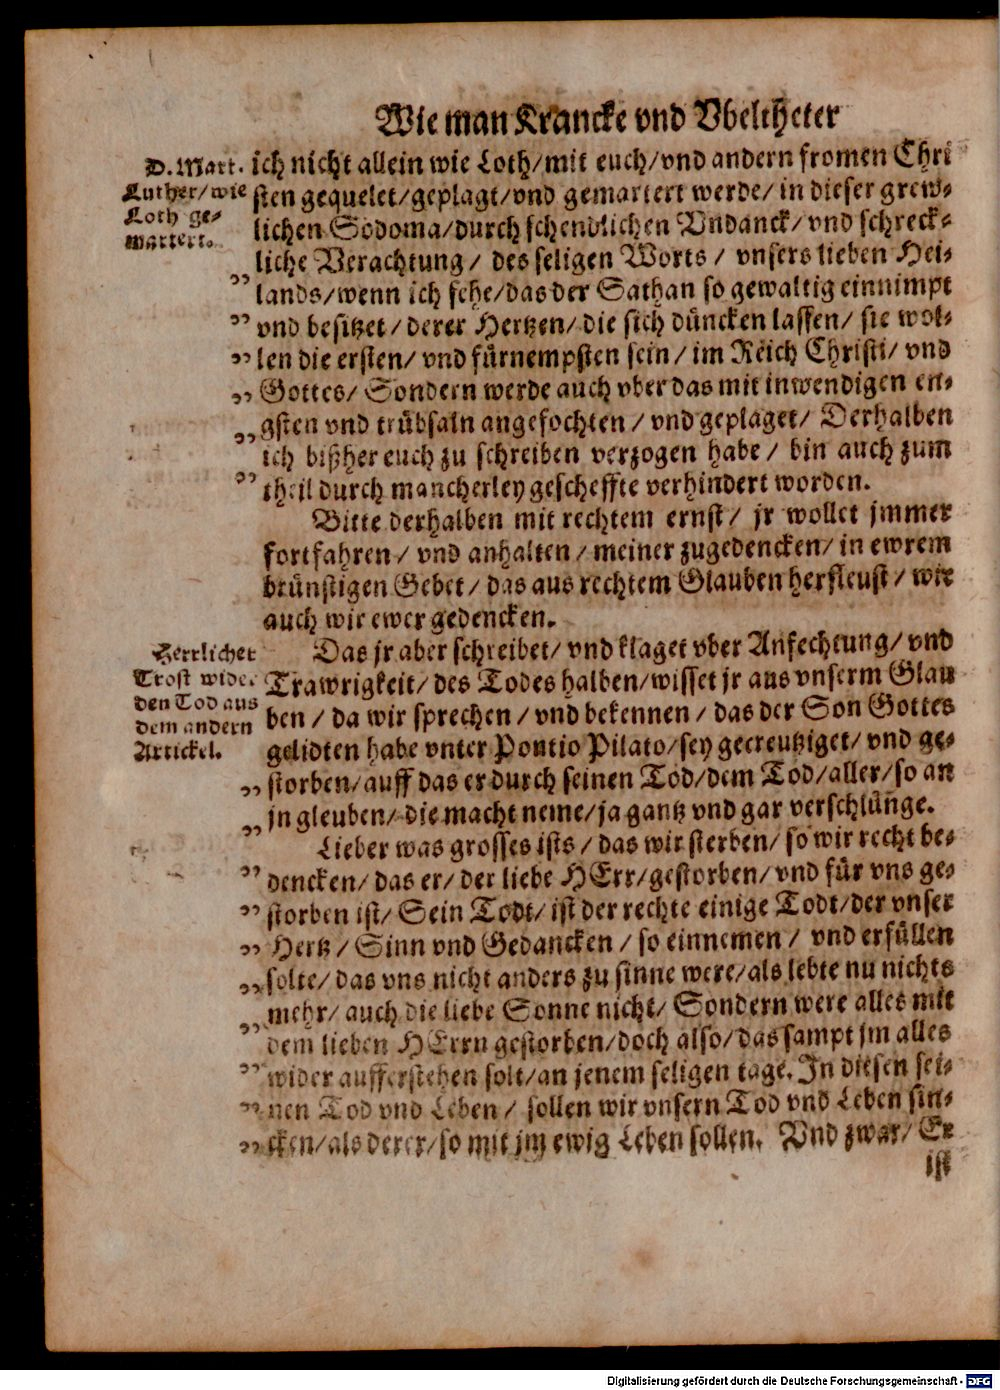 Wie man Krancke vnd Vbeltheter
D. Mart.
Luther/wie
Loth ge⸗
martert.
ich nicht allein wie Loth/mit euch/vnd andern fromen Chri
sten gequelet/geplagt/vnd gemartert werde/in dieser grew⸗
lichen Sodoma/durch schendlichen Vndanck/vnd schreck⸗
liche Verachtung/ des seligen Worts / vnsers lieben Hei⸗
lands/wenn ich sehe/das der Sathan so gewaltig einnimpt
vnd besitzet/derer Hertzen/die sich düncken lassen/ sie wol⸗
len die ersten/ vnd fürnempsten sein/im Reich Christi/ vnd
Gottes/ Sondern werde auch vber das mit inwendigen en⸗
gsten vnd trübsaln angefochten / vnd geplaget/ Derhalben
ich bißher euch zu schreiben verzogen habe/ bin auch zum
theil durch mancherley gescheffte verhindert worden.
Bitte derhalben mit rechtem ernst/ jr wollet jmmer
fortfahren/ vnd anhalten/meiner zugedencken/in ewrem
brünstigen Gebet/das aus rechtem Glauben herfleust/wie
auch wir ewer gedencken.
Herrlicher
Trost wider
den Tod aus
dem andern
Artickel.
Das jr aber schreibet/vnd klaget vber Anfechtung/vnd
Trawrigkeit/des Todes halben/wisset jr aus vnserm Glau
ben / da wir sprechen / vnd bekennen / das der Son Gottes
gelidten habe vnter Pontio Pilato/sey gecreutziget/vnd ge⸗
storben/auff das er durch seinen Tod/dem Tod/aller/so an
jn gleuben/die macht neme/ja gantz vnd gar verschlünge.
Lieber was grosses ists/das wir sterben/so wir recht be⸗
dencken/das er/der liebe HErr/gestorben/vnd für vns ge⸗
storben ist/Sein Todt/ist der rechte einige Todt/der vnser
Hertz/ Sinn vnd Gedancken / so einnemen / vnd erfüllen
solte/das vns nicht anders zu sinne were/als lebte nu nichts
mehr/auch die liebe Sonne nicht/ Sondern were alles mit
dem lieben HErrn gestorben/doch also/das sampt jm alles
wider aufferstehen solt/an jenem seligen tage. In diesen sei⸗
nen Tod vnd Leben / sollen wir vnsern Tod vnd Leben sin⸗
cken/als derer/so mit jm ewig Leben sollen. Vnd zwar/ Er
ist
Digitalisierung gefördert durch die Deutsche Forschungsgemeinschaft - DFG